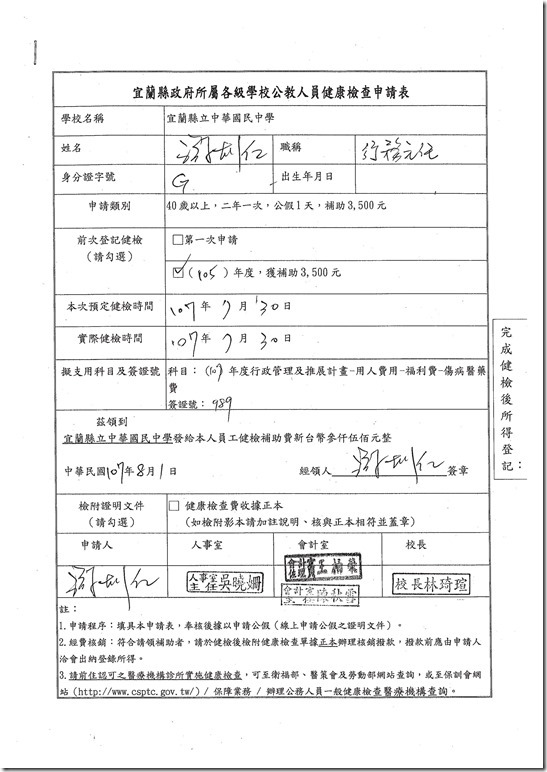 宜蘭縣政府所屬各級學校公教人員健康檢查申請表
學校名稱 宜蘭縣立中華國民中學
姓名 職稱
身分證字號 G 出生年月日
申請類別 40歲以上，二年一次，公假1天，補助3,500元
前次登記健檢 □第一次申請
(請勾選) ☑(105)年度，獲補助3,500元
本次預定健檢時間 107年 7月 30日
實際健檢時間 107年 7月 30日
擬支用科目及簽證號 科目：(107 年度行政管理及推展計畫-用人費用-福利費-傷病醫藥
費
簽證號：989
茲領到
宜蘭縣立中華國民中學發給本人員工健檢補助費新台幣參仟伍佰元整
中華民國107年8月1日 經領人 簽章
檢附證明文件 □ 健康檢查費收據正本
(請勾選) (如檢附影本請加註說明、核與正本相符並蓋章)
申請人 人事室 會計室 校長
人事室主任吳曉姍
校長林琦瑄
註：
1.申請程序：填具本申請表，奉核後據以申請公假（線上申請公假之證明文件）。
2.經費核銷：符合請領補助者，請於健檢後檢附健康檢查單據正本辦理核銷撥款，撥款前應由申請人
洽會出納登錄所得。
3.請前住認可之醫療機構診所實施健康檢查，可至衛福部、醫策會及勞動部網站查詢，或至保訓會網
站(http://www.csptc.gov.tw/) / 保障業務 / 辦理公務人員一般健康檢查醫療機構查詢。
完成健檢後所得登記：